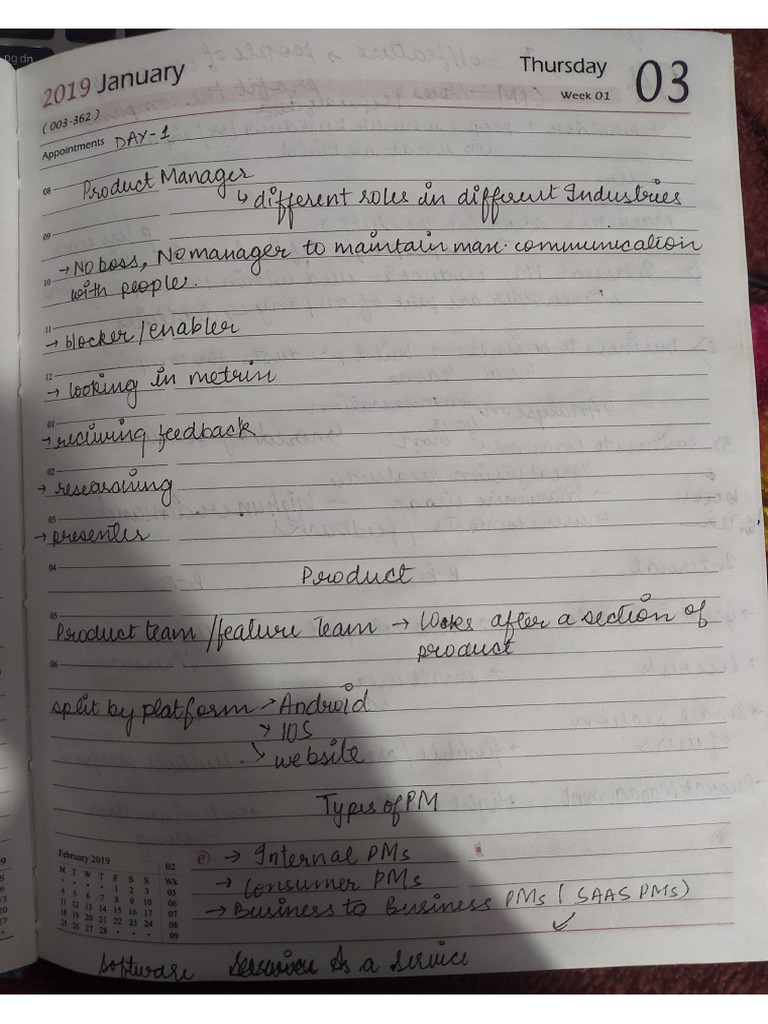 pg dn
2019 January
Thursday
Week 01
03
(003-362)
Appointments DAY-1
08 Product Manager
↳ different roles in different Industries
09
→ No boss, No manager to maintain max. communication
10 with people.
11
→ blocker/enabler
12
→ looking in metrin
01
→ reciving feedback
02
→ researching
03
→ presenter
04
Product
05
Product team/feature Team → looks after a section of
product
06
split by platform → Android
→ IOS
→ website
Types of PM
→ Internal PMs
→ Consumer PMs
→ Business to Business PMs (SAAS PMs)
February 2019
M T W T F S S Wk
1 2 3 05
4 5 6 7 8 9 10 06
11 12 13 14 15 16 17 07
18 19 20 21 22 23 24 08
25 26 27 28 09
02
Software As a Service